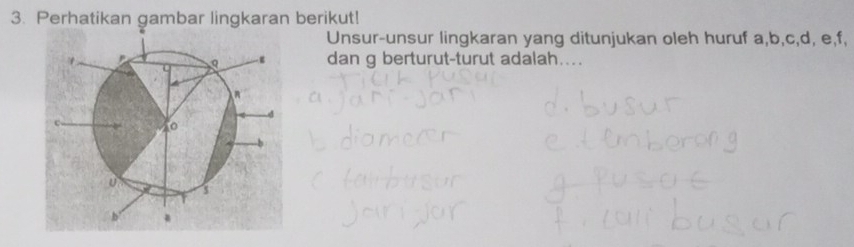 3. Perhatikan gambar lingkaran berikut!
Unsur-unsur lingkaran yang ditunjukan oleh huruf a,b,c,d, e,f,
dan g berturut-turut adalah....
titik pusat
a. jari-jari
d. busur
b. diameter
e. temberong
c. tambusur
g. pusat
jari jar
f. tali busur
P
Q
R
O
U
T
S
c
d
b
a